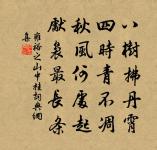 八樹拂丹霄
四時青不凋
秋風何處起
獻裊最長条
雍裕之山中桂詞典網
集